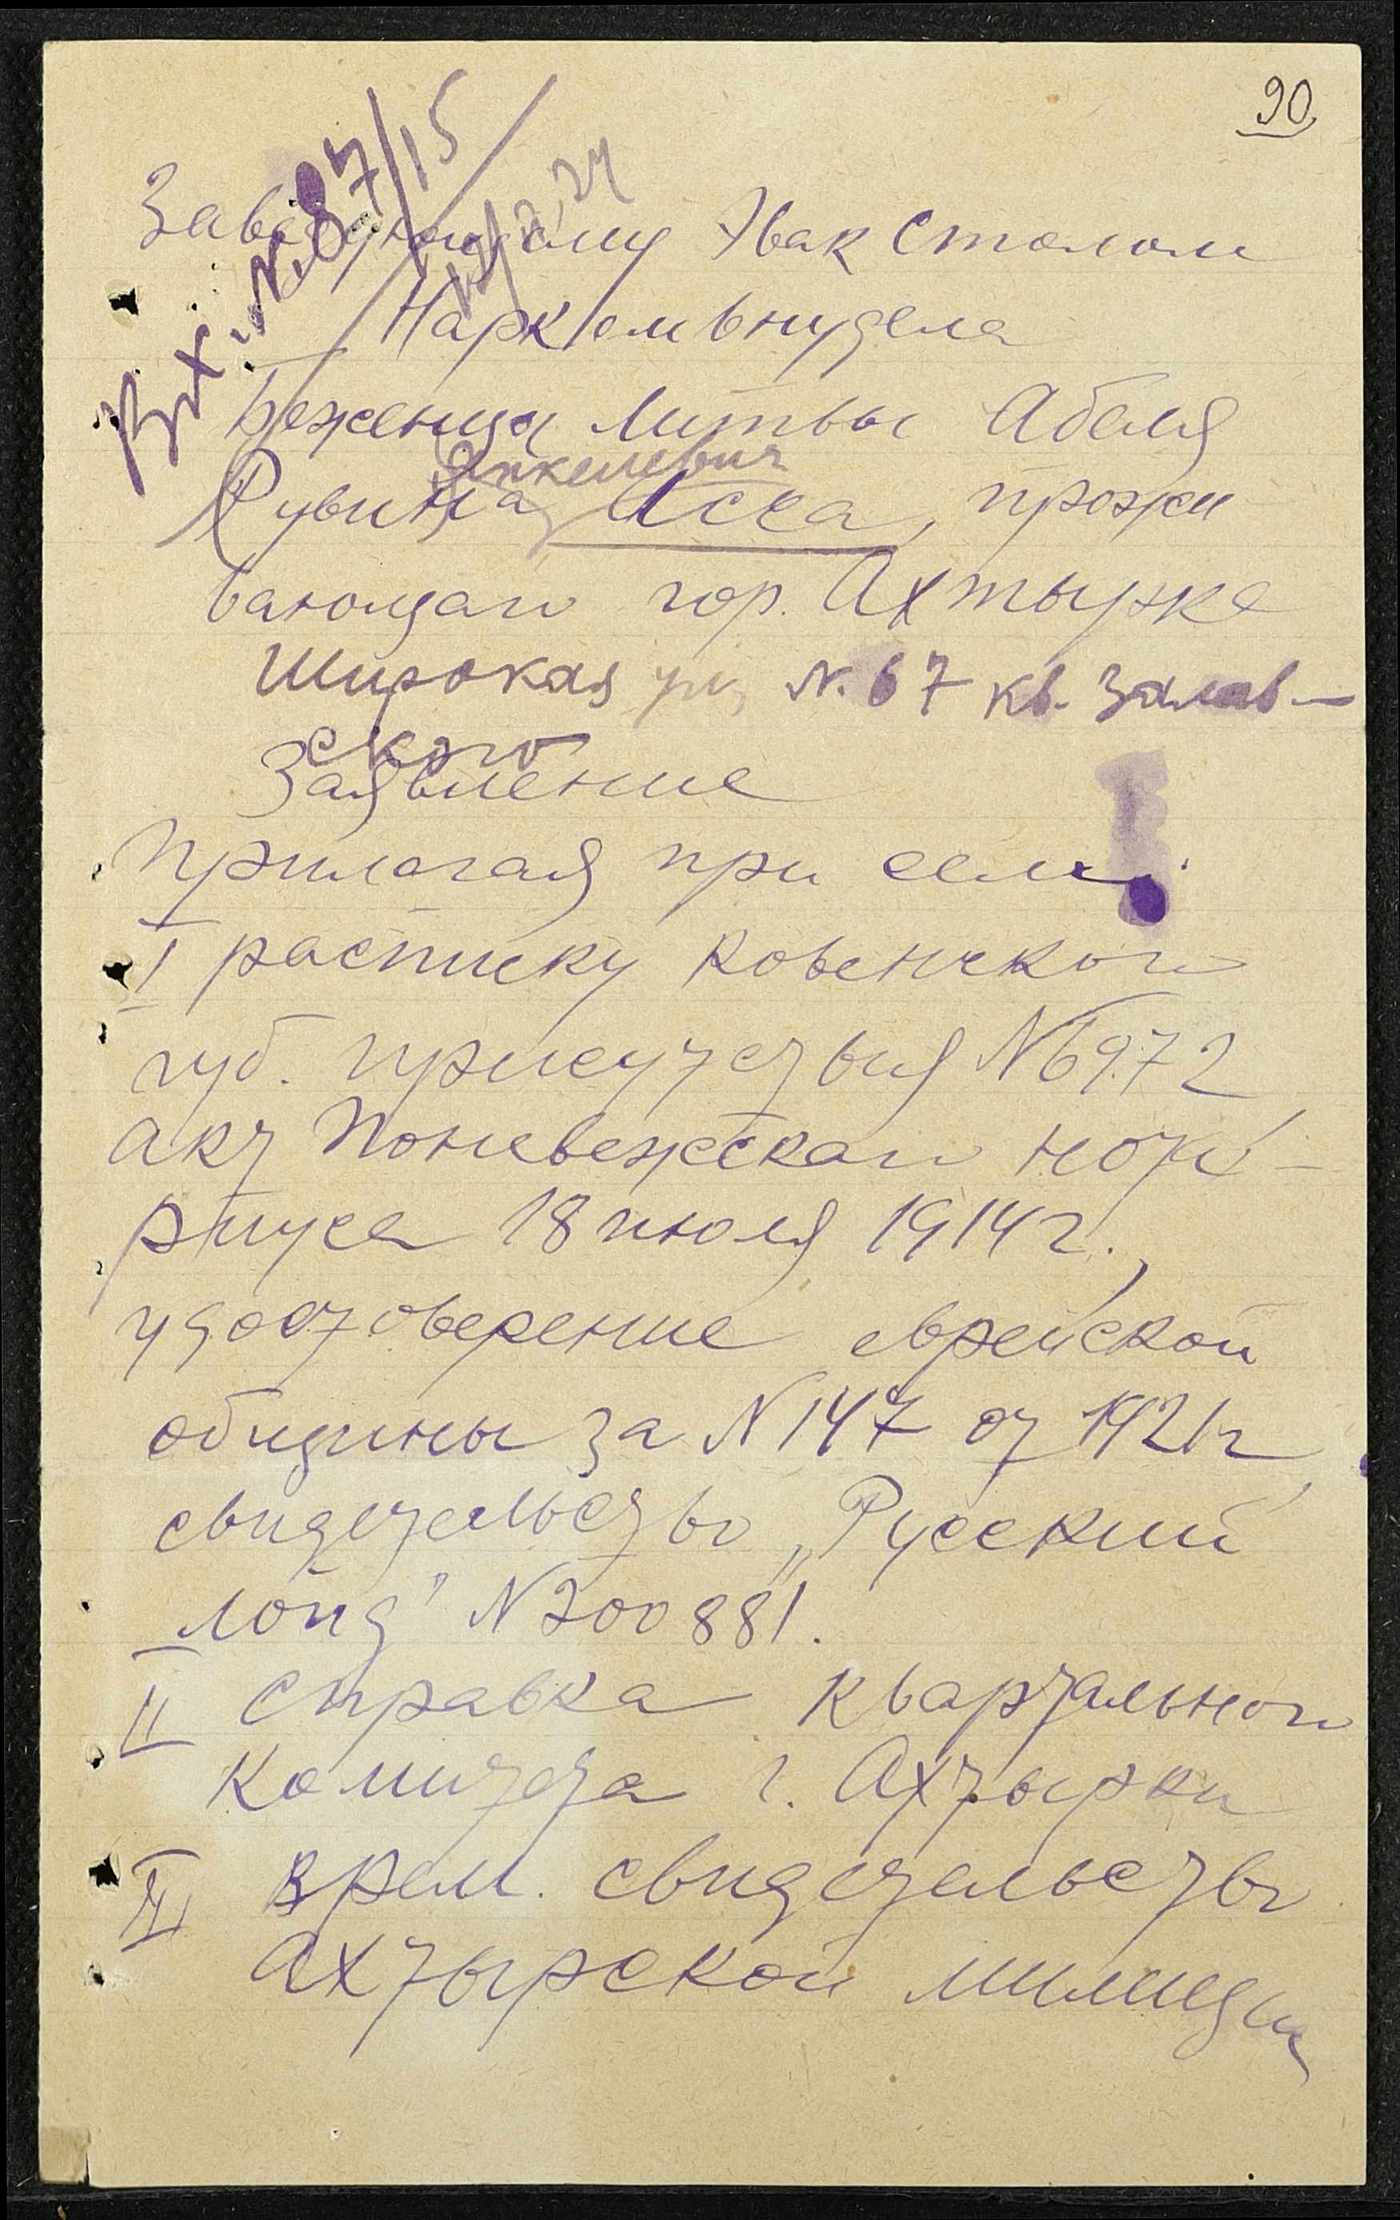 90
Вх. N. 87/15
Заведующему Эвак Столом
Наркомвнудела
Беженца Литвы Абеля
Янкелевич
Рувина Исса, прожи
вающаго гор. Ахтырке
Широкая ул, N. 67 кв. Залев-
ского
Заявление
Прилагая при сем:
I расписку Ковенскаго
губ. присутствия N 6972,
акт Поневежскаго нота-
риуса 18 июля 1914 г.,
удостоверение еврейской
общины за N 147 от 1921 г,
свидетельство „Русский
лойд" N 200881.
II Справка квартальнаго
комитета г. Ахтырки
III врем. свидетельство
Ахтырской милиции